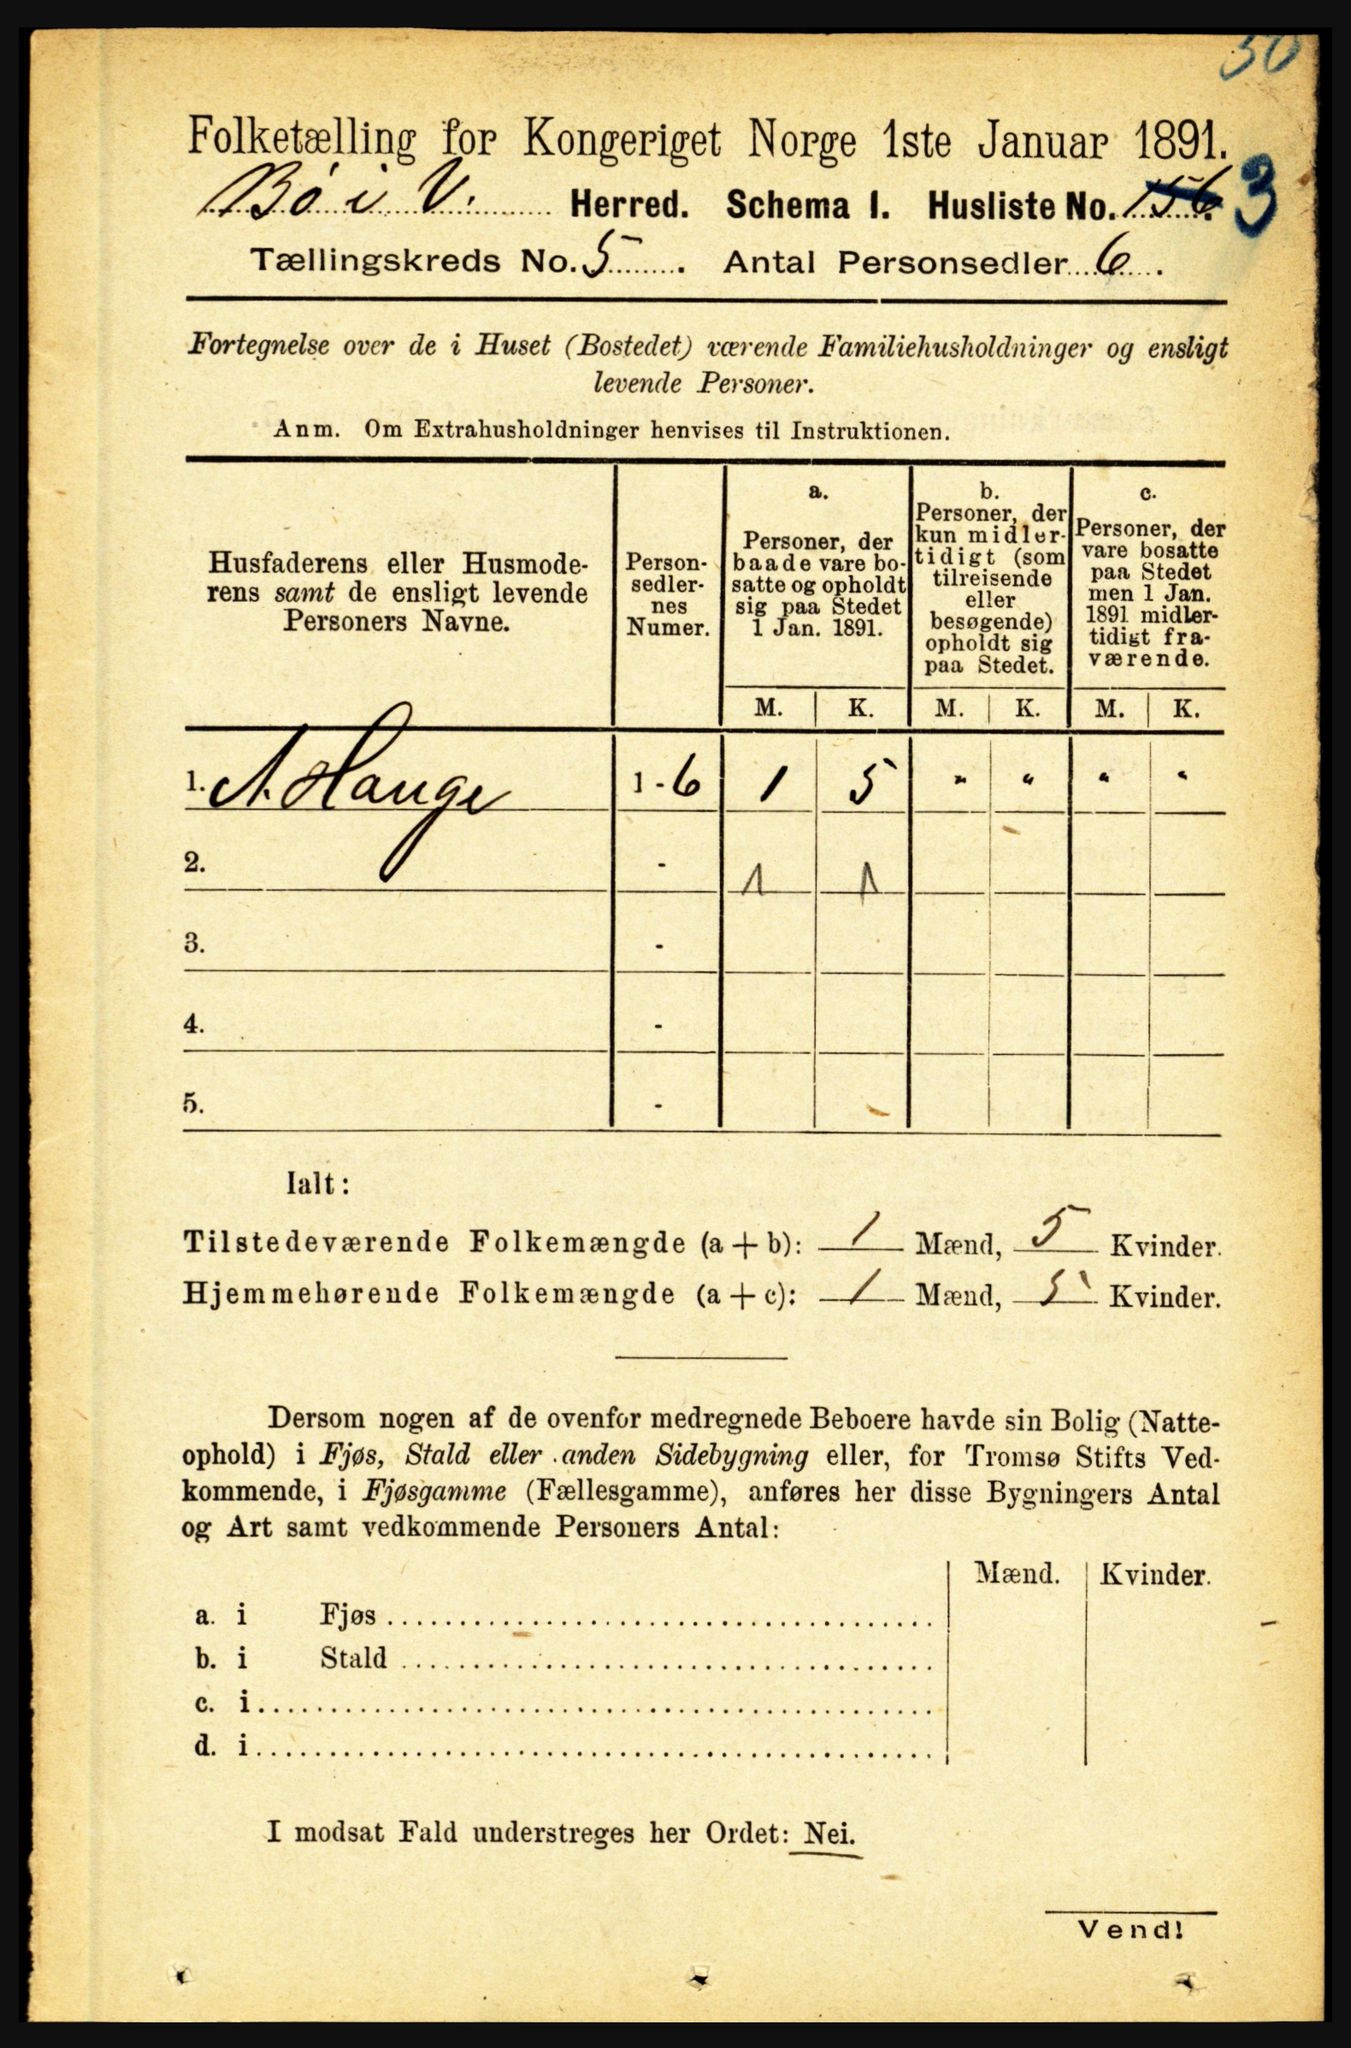 30
Folketælling for Kongeriget Norge 1ste Januar 1891.
Bø i V. Herred. Schema I. Husliste No. 156. 3
Tællingskreds No. 5. Antal Personsedler 6.
Fortegnelse over de i Huset (Bostedet) værende Familiehusholdninger og ensligt
levende Personer.
Anm. Om Extrahusholdninger henvises til Instruktionen.
Husfaderens eller Husmode-
rens samt de ensligt levende
Personers Navne.
Person-
sedler-
nes
Numer.
a.
Personer, der
baade vare bo-
satte og opholdt
sig paa Stedet
1 Jan. 1891.
b.
Personer, der
kun midler-
tidigt (som
tilreisende
eller
besøgende)
opholdt sig
paa Stedet.
c.
Personer, der
vare bosatte
paa Stedet
men 1 Jan.
1891 midler-
tidigt fra-
værende.
M. K. M. K. M. K.
1. A. Hauge 1-6 1 5 " " " "
2. - 1 1
3. -
4. -
5. -
Ialt:
Tilstedeværende Folkemængde (a + b): 1 Mænd, 5 Kvinder.
Hjemmehørende Folkemængde (a + c): 1 Mænd, 5 Kvinder.
Dersom nogen af de ovenfor medregnede Beboere havde sin Bolig (Natte-
ophold) i Fjøs, Stald eller anden Sidebygning eller, for Tromsø Stifts Ved-
kommende, i Fjøsgamme (Fællesgamme), anføres her disse Bygningers Antal
og Art samt vedkommende Personers Antal:
Mænd. Kvinder.
a. i Fjøs
b. i Stald
c. i
d. i
I modsat Fald understreges her Ordet: Nei.
Vend!